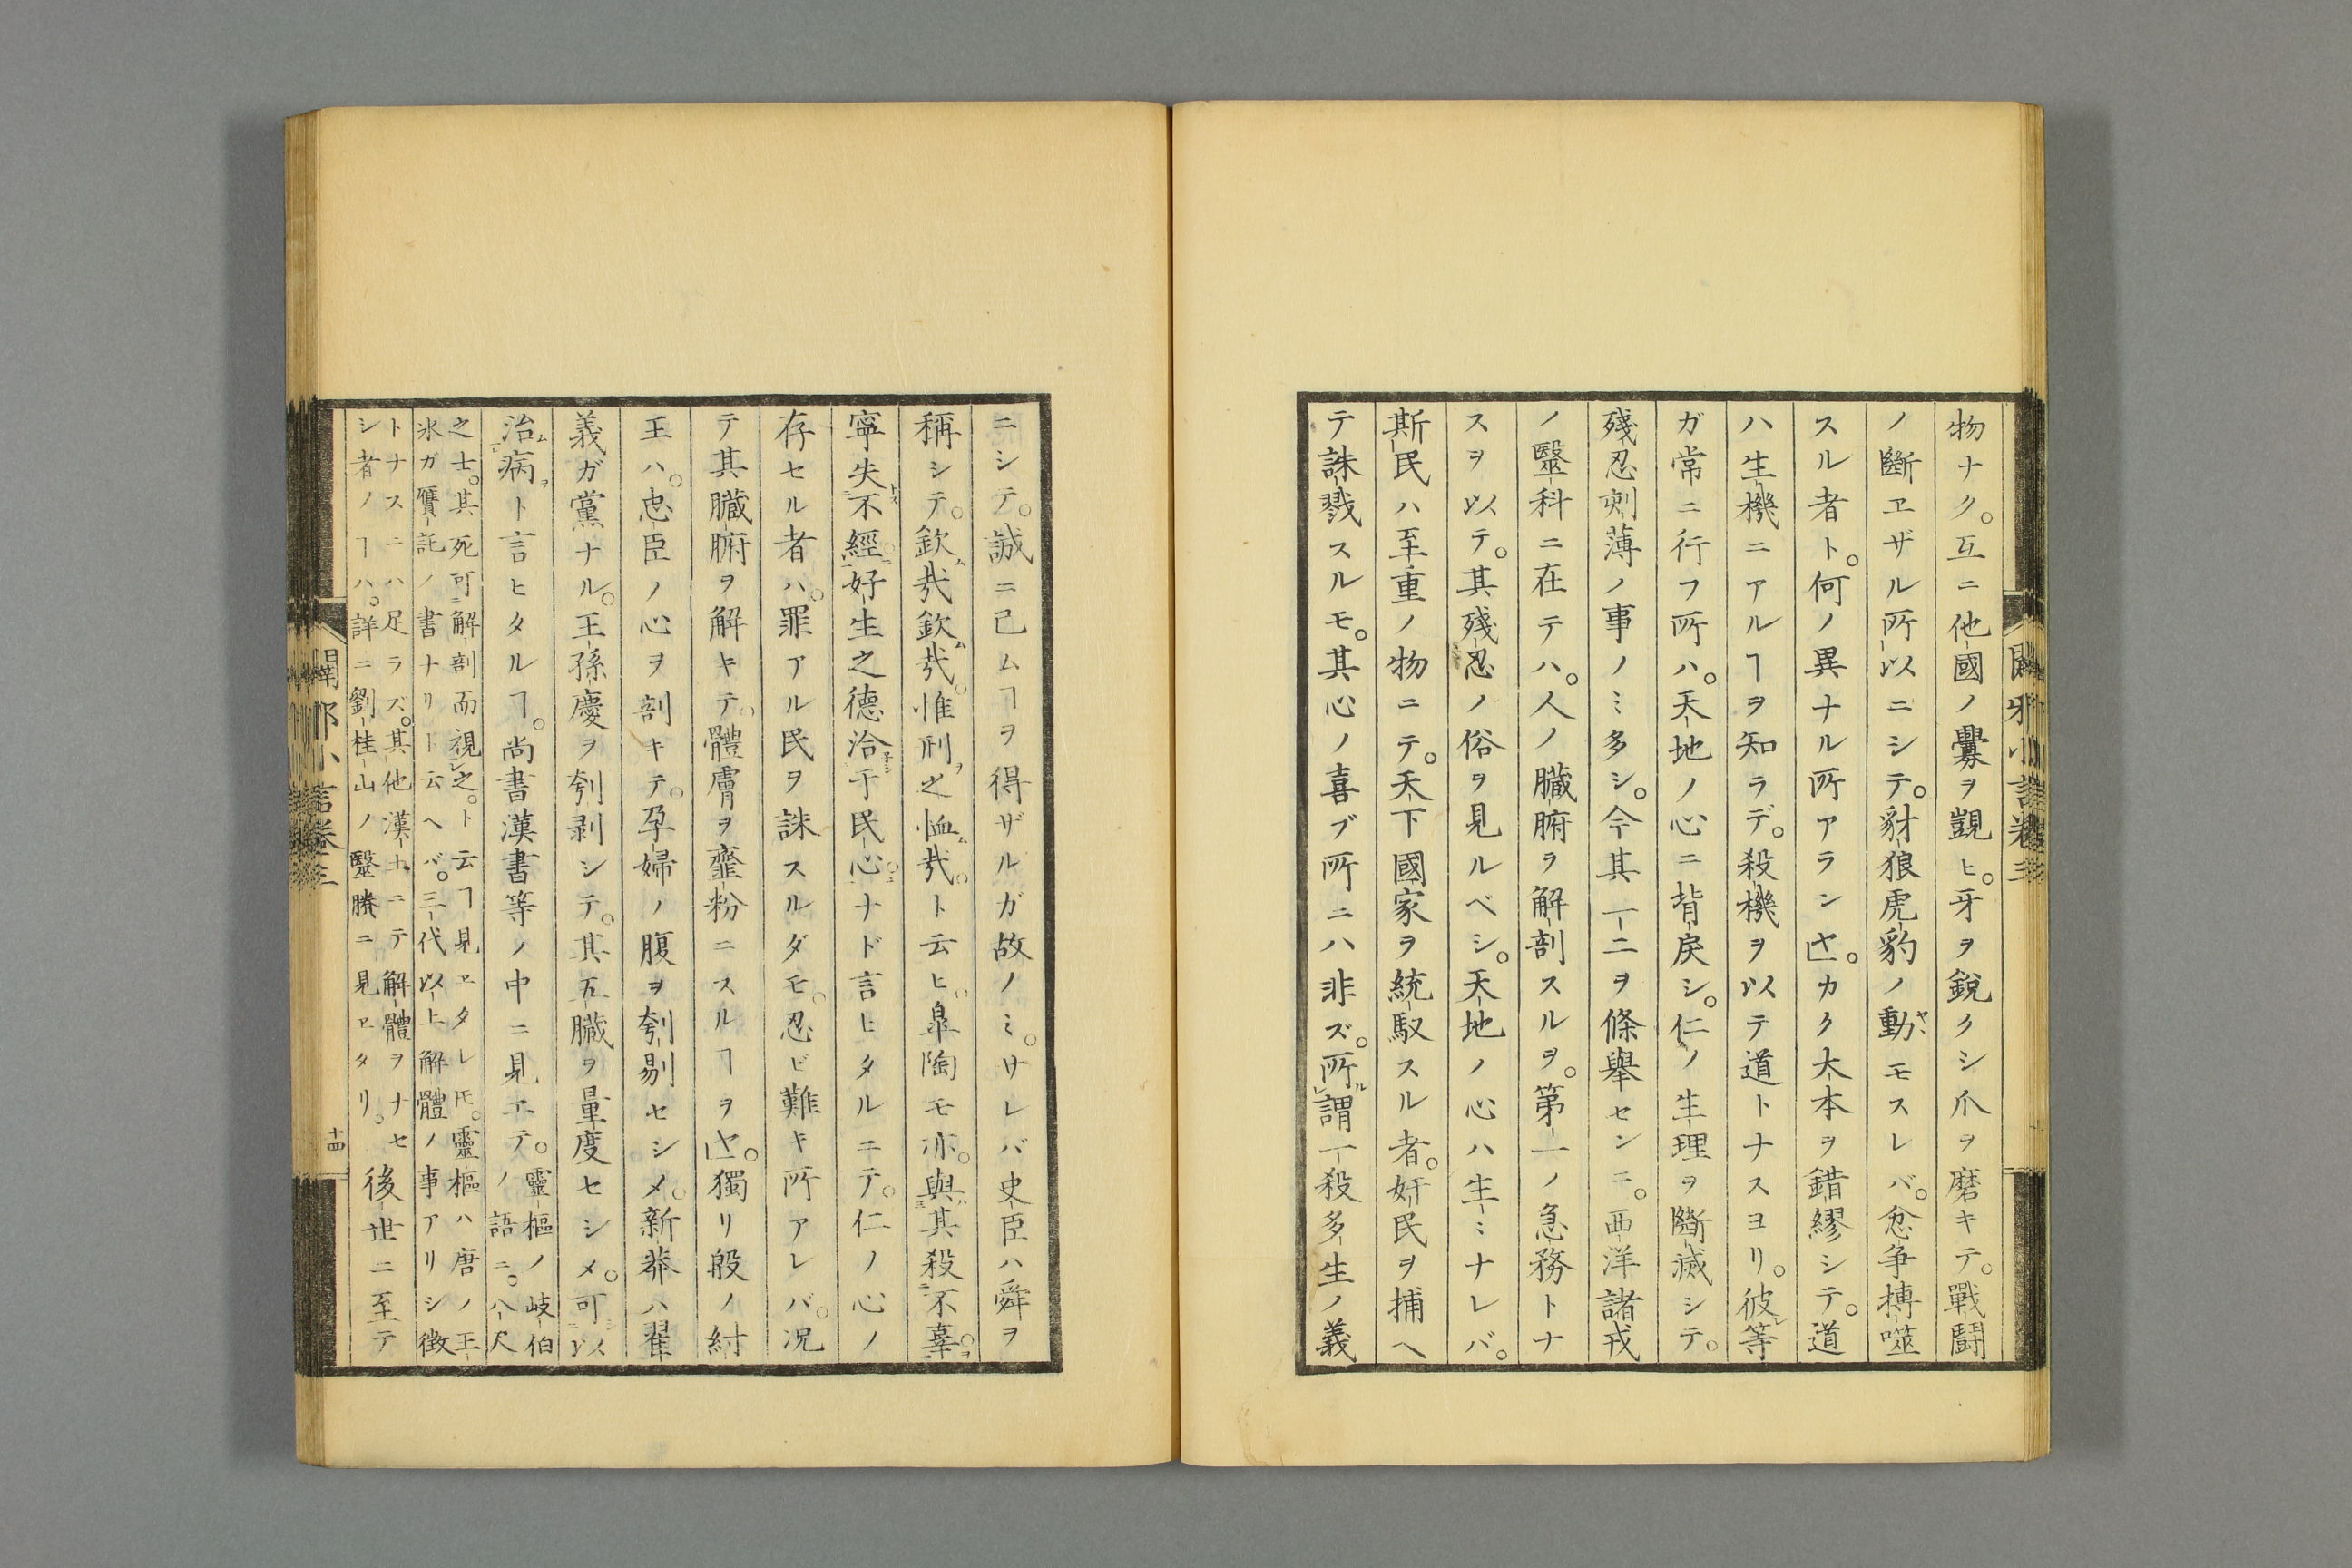 物ナク。互ニ他國ノ釁ヲ覬ヒ。牙ヲ銳クシ爪ヲ磨キテ。戰鬪
ノ斷ヱザル所以ニシテ。豺狼虎豹ノ動モスレバ。忿爭摶噬
スル者ト。何ノ異ナル所アラン也。カク大本ヲ錯繆シテ。道
ハ生機ニアルヿヲ知ラデ。殺機ヲ以テ道トナスヨリ。彼等
ガ常ニ行フ所ハ。天地ノ心ニ背戾シ。仁ノ生理ヲ斷滅シテ。
殘忍刻薄ノ事ノミ多シ。今其一二ヲ條舉センニ。西洋諸戎
ノ毉科ニ在テハ。人ノ臟腑ヲ解剖スルヲ。第一ノ急務トナ
スヲ以テ。其殘忍ノ俗ヲ見ルベシ。天地ノ心ハ生ミナレバ。
斯民ハ至重ノ物ニテ。天下國家ヲ統馭スル者。奸民ヲ捕ヘ
テ誅戮スルモ。其心ノ喜ブ所ニハ非ズ。所謂一殺多生ノ義
闢邪小言卷三
ニシテ。誠ニ已ムヿヲ得ザルガ故ノミ。サレバ史臣ハ舜ヲ
稱シテ。欽哉欽哉。惟刑之恤哉。ト云ヒ。皐陶モ亦。與其殺不辜。
寧失不經。好生之德洽于民心ナド言ヒタルニテ。仁ノ心ノ
存セル者ハ。罪アル民ヲ誅スルダモ。忍ビ難キ所アレバ。况
テ其臟腑ヲ解キテ。體膚ヲ韲粉ニスルヿヲ也。獨リ殷ノ紂
王ハ。忠臣ノ心ヲ剖キテ。孕婦ノ腹ヲ刳剔セシメ。新莽ハ翟
義ガ黨ナル。王孫慶ヲ刳剥シテ。其五臟ヲ量度セシメ。可以
治病ト言ヒタルヿ。尚書漢書等ノ中ニ見エテ。靈樞ノ岐伯
ノ語ニ。八尺
之士。其死可解剖而視之。ト云ヿ見ヱタレ𪜈。靈樞ハ唐ノ王
氷ガ贋託ノ書ナリト云ヘバ。三代以上解體ノ事アリシ徴
トナスニハ足ラズ。其他漢土ニテ解體ヲナセ
シ者ノヿハ。詳ニ劉桂山ノ毉賸ニ見ヱタリ。後世ニ至テ
闢邪小言卷三
十四